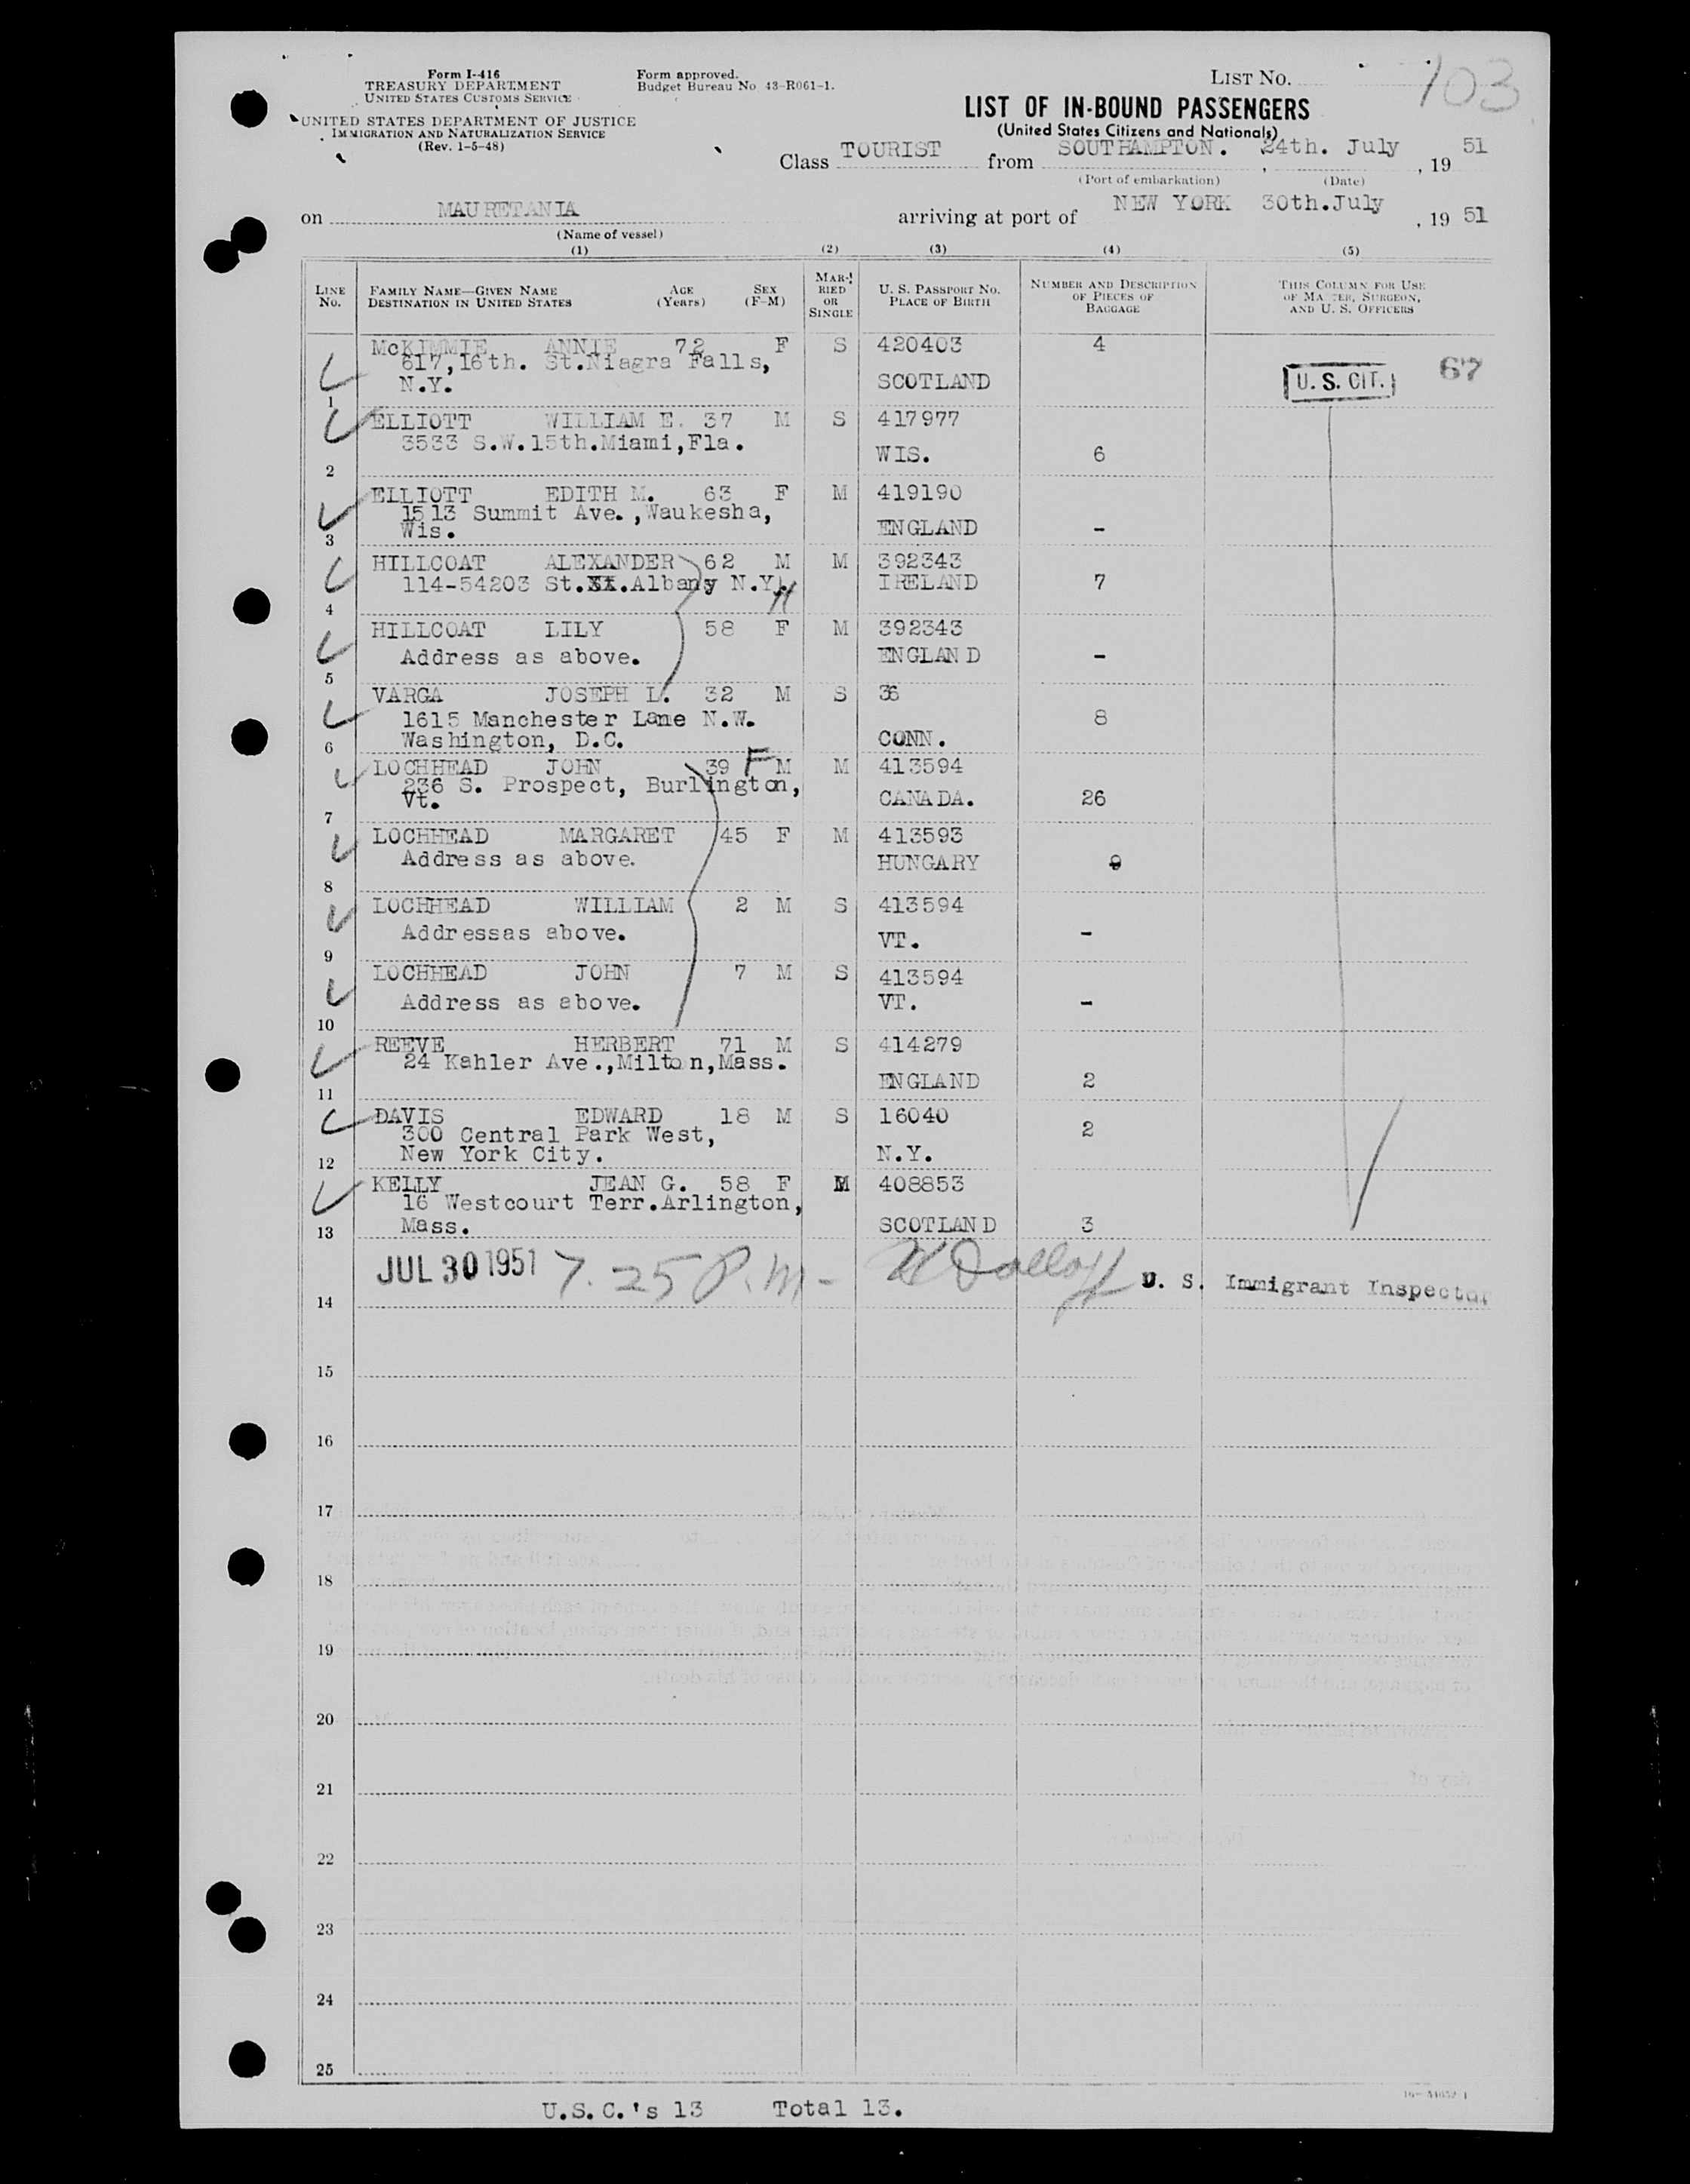 Form I-416
TREASURY DEPARTMENT
UNITED STATES CUSTOMS SERVICE
UNITED STATES DEPARTMENT OF JUSTICE
IMMIGRATION AND NATURALIZATION SERVICE
(Rev. 1-5-48)
Form approved.
Budget Bureau No 43-R061-1.
LIST NO. 103
LIST OF IN-BOUND PASSENGERS
(United States Citizens and Nationals)
Class TOURIST from SOUTHAMPTON. , 24th. July , 19 51
(Port of embarkation) (Date)
on MAURETANIA arriving at port of NEW YORK 30th.July , 19 51
(Name of vessel)
(1) (2) (3) (4) (5)
LINE NO. FAMILY NAME—GIVEN NAME DESTINATION IN UNITED STATES AGE (Years) SEX (F-M) MARRIED OR SINGLE U. S. PASSPORT NO. PLACE OF BIRTH NUMBER AND DESCRIPTION OF PIECES OF BAGGAGE THIS COLUMN FOR USE OF MASTER, SURGEON, AND U. S. OFFICERS
McKIMMIE ANNIE 72 F S 420403 4
617,16th. St.Niagra Falls,
N.Y. SCOTLAND U. S. CIT. 67
1
ELLIOTT WILLIAM E. 37 M S 417977
3533 S.W.15th.Miami,Fla.
WIS. 6
2
ELLIOTT EDITH M. 63 F M 419190
1513 Summit Ave.,Waukesha,
Wis. ENGLAND -
3
HILLCOAT ALEXANDER 62 M M 392343
114-54203 St. .Albany N.Y. IRELAND 7
4
HILLCOAT LILY 58 F M 392343
Address as above. ENGLAND -
5
VARGA JOSEPH L. 32 M S 36
1615 Manchester Lane N.W. 8
Washington, D.C. CONN.
6
LOCHHEAD JOHN 39 F M M 413594
236 S. Prospect, Burlington,
Vt. CANADA. 26
7
LOCHHEAD MARGARET 45 F M 413593
Address as above. HUNGARY
8
LOCHHEAD WILLIAM 2 M S 413594
Addressas above. VT. -
9
LOCHHEAD JOHN 7 M S 413594
Address as above. VT. -
10
REEVE HERBERT 71 M S 414279
24 Kahler Ave.,Milton,Mass.
ENGLAND 2
11
DAVIS EDWARD 18 M S 16040
300 Central Park West, 2
New York City. N.Y.
12
KELLY JEAN G. 58 F M 408853
16 Westcourt Terr.Arlington,
Mass. SCOTLAND 3
13
JUL 30 1951 7.25 P.M- U. S. Immigrant Inspector
14
15
16
17
18
19
20
21
22
23
24
25
U.S.C.'s 13 Total 13.